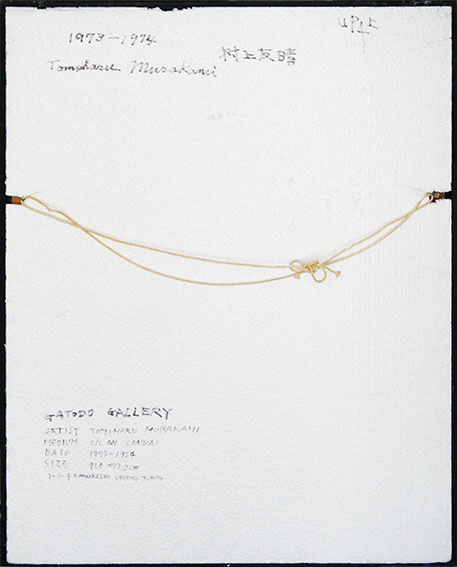 UP上
1973－1974
村上友晴
Tomoharu Murakami
GATODO GALLERY
ARTIST TOMOHARU MURAKAMI
MEDIUM OIL ON CANVAS
DATE 1973－1974
SIZE